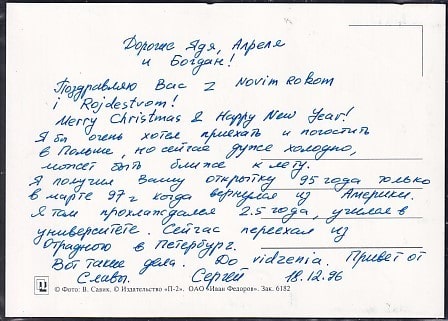 Дорогие Ядя, Апреля
и Богдан!
Поздравляю Вас z Novim Rokom
i Rojdestvom!
Merry Christmas & Happy New Year!
Я бы очень хотел приехать и погостить
в Польше, но сейчас дуже холодно,
может быть ближе к лету.
Я получил Вашу открытку 95 года только
в марте 97 г когда вернулся из Америки.
Я там прохлаждался 2.5 года, учился в
университете. Сейчас переехал из
Отрадного в Петербург.
Вот такие дела. Do vidzenia. Привет от
Славы. Сергей 18.12.96
© Фото: В. Савик. © Издательство «П-2». ОАО «Иван Федоров». Зак. 6182